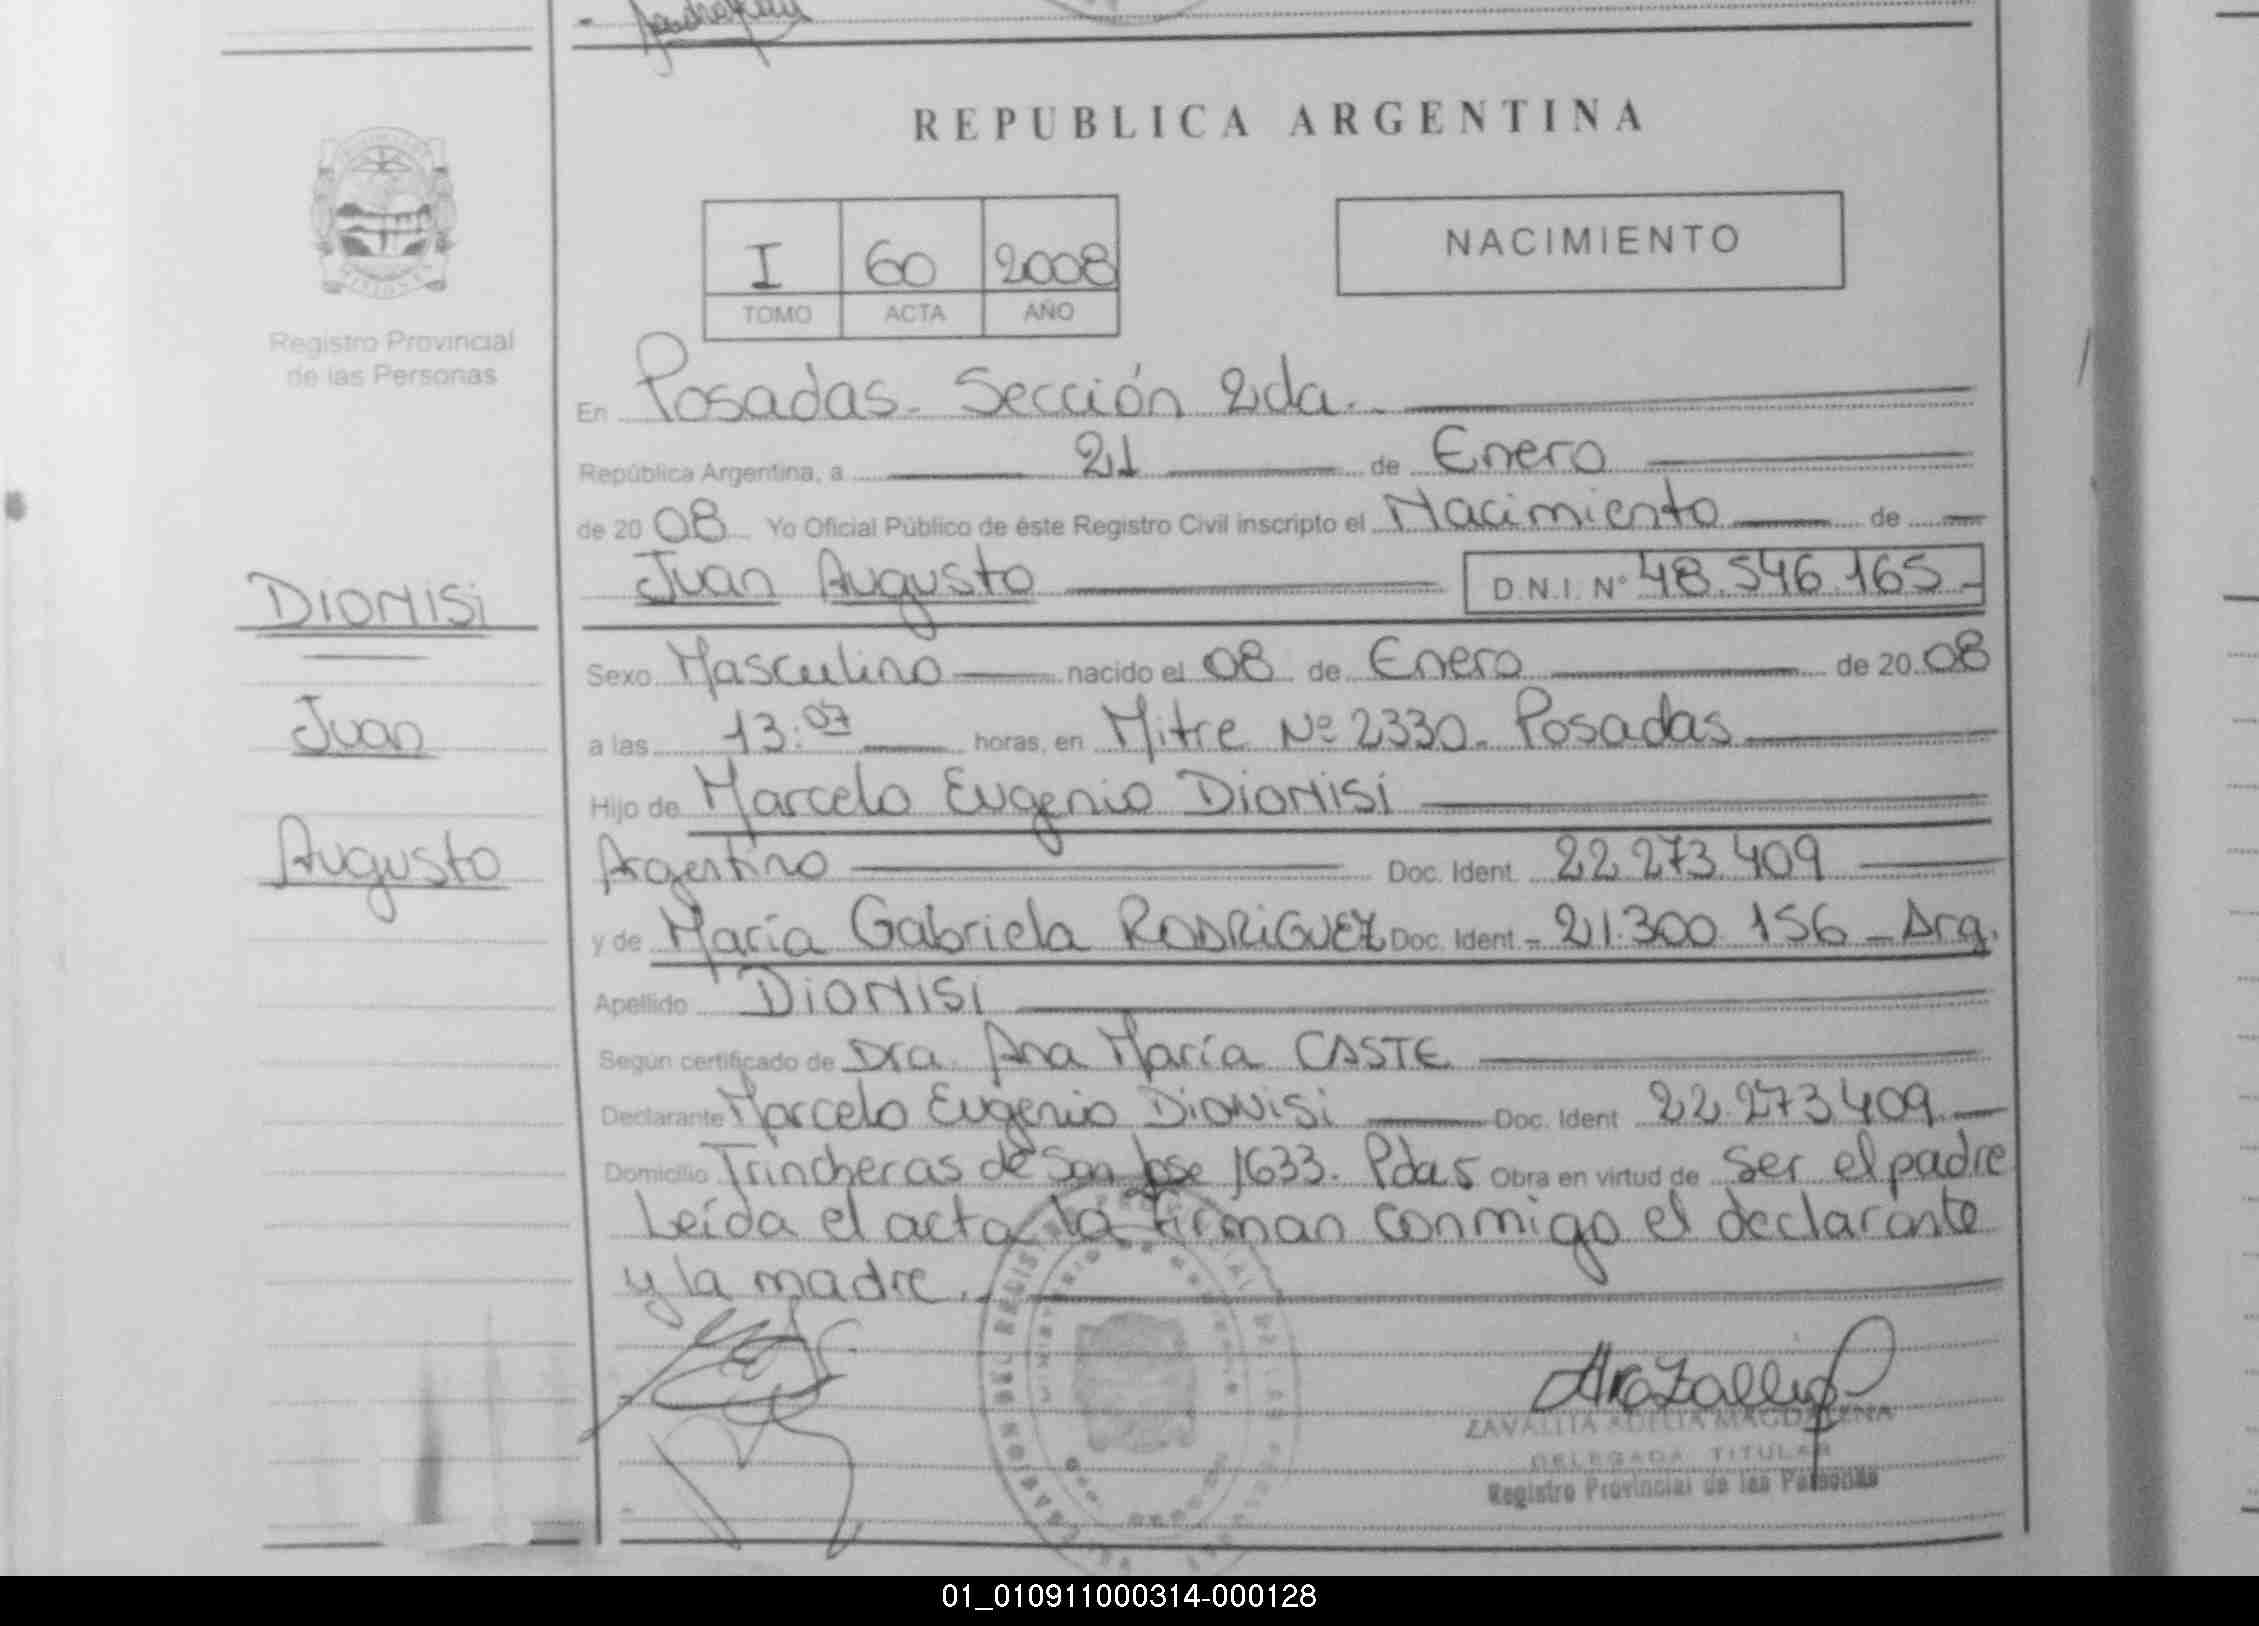 REPUBLICA ARGENTINA
I 60 2008
TOMO ACTA AÑO
NACIMIENTO
Registro Provincial
de las Personas
En Posadas. Sección 2da.
República Argentina, a 21 de Enero
de 2008 Yo Oficial Público de éste Registro Civil inscripto el Nacimiento de
Juan Augusto D.N.I. Nº 48.546.165
DIONISI
Juan
Augusto
Sexo Masculino nacido el 08 de Enero de 2008
a las 13:07 horas, en Mitre Nº 2330. Posadas
Hijo de Marcelo Eugenio DIONISI
Argentino Doc. Ident. 22.273.409
y de María Gabriela RODRIGUEZ Doc. Ident 21.300.156 - Arg.
Apellido DIONISI
Según certificado de Dra. Ana María CASTE
Declarante Marcelo Eugenio DIONISI Doc. Ident 22.273.409
Domicilio Trincheras de San Jose 1633. Pdas Obra en virtud de ser el padre
Leída el acta la firman conmigo el declarante
y la madre.
ZAVALITA ADELIA MAGDALENA
DELEGADA TITULAR
Registro Provincial de las Personas
01_010911000314-000128